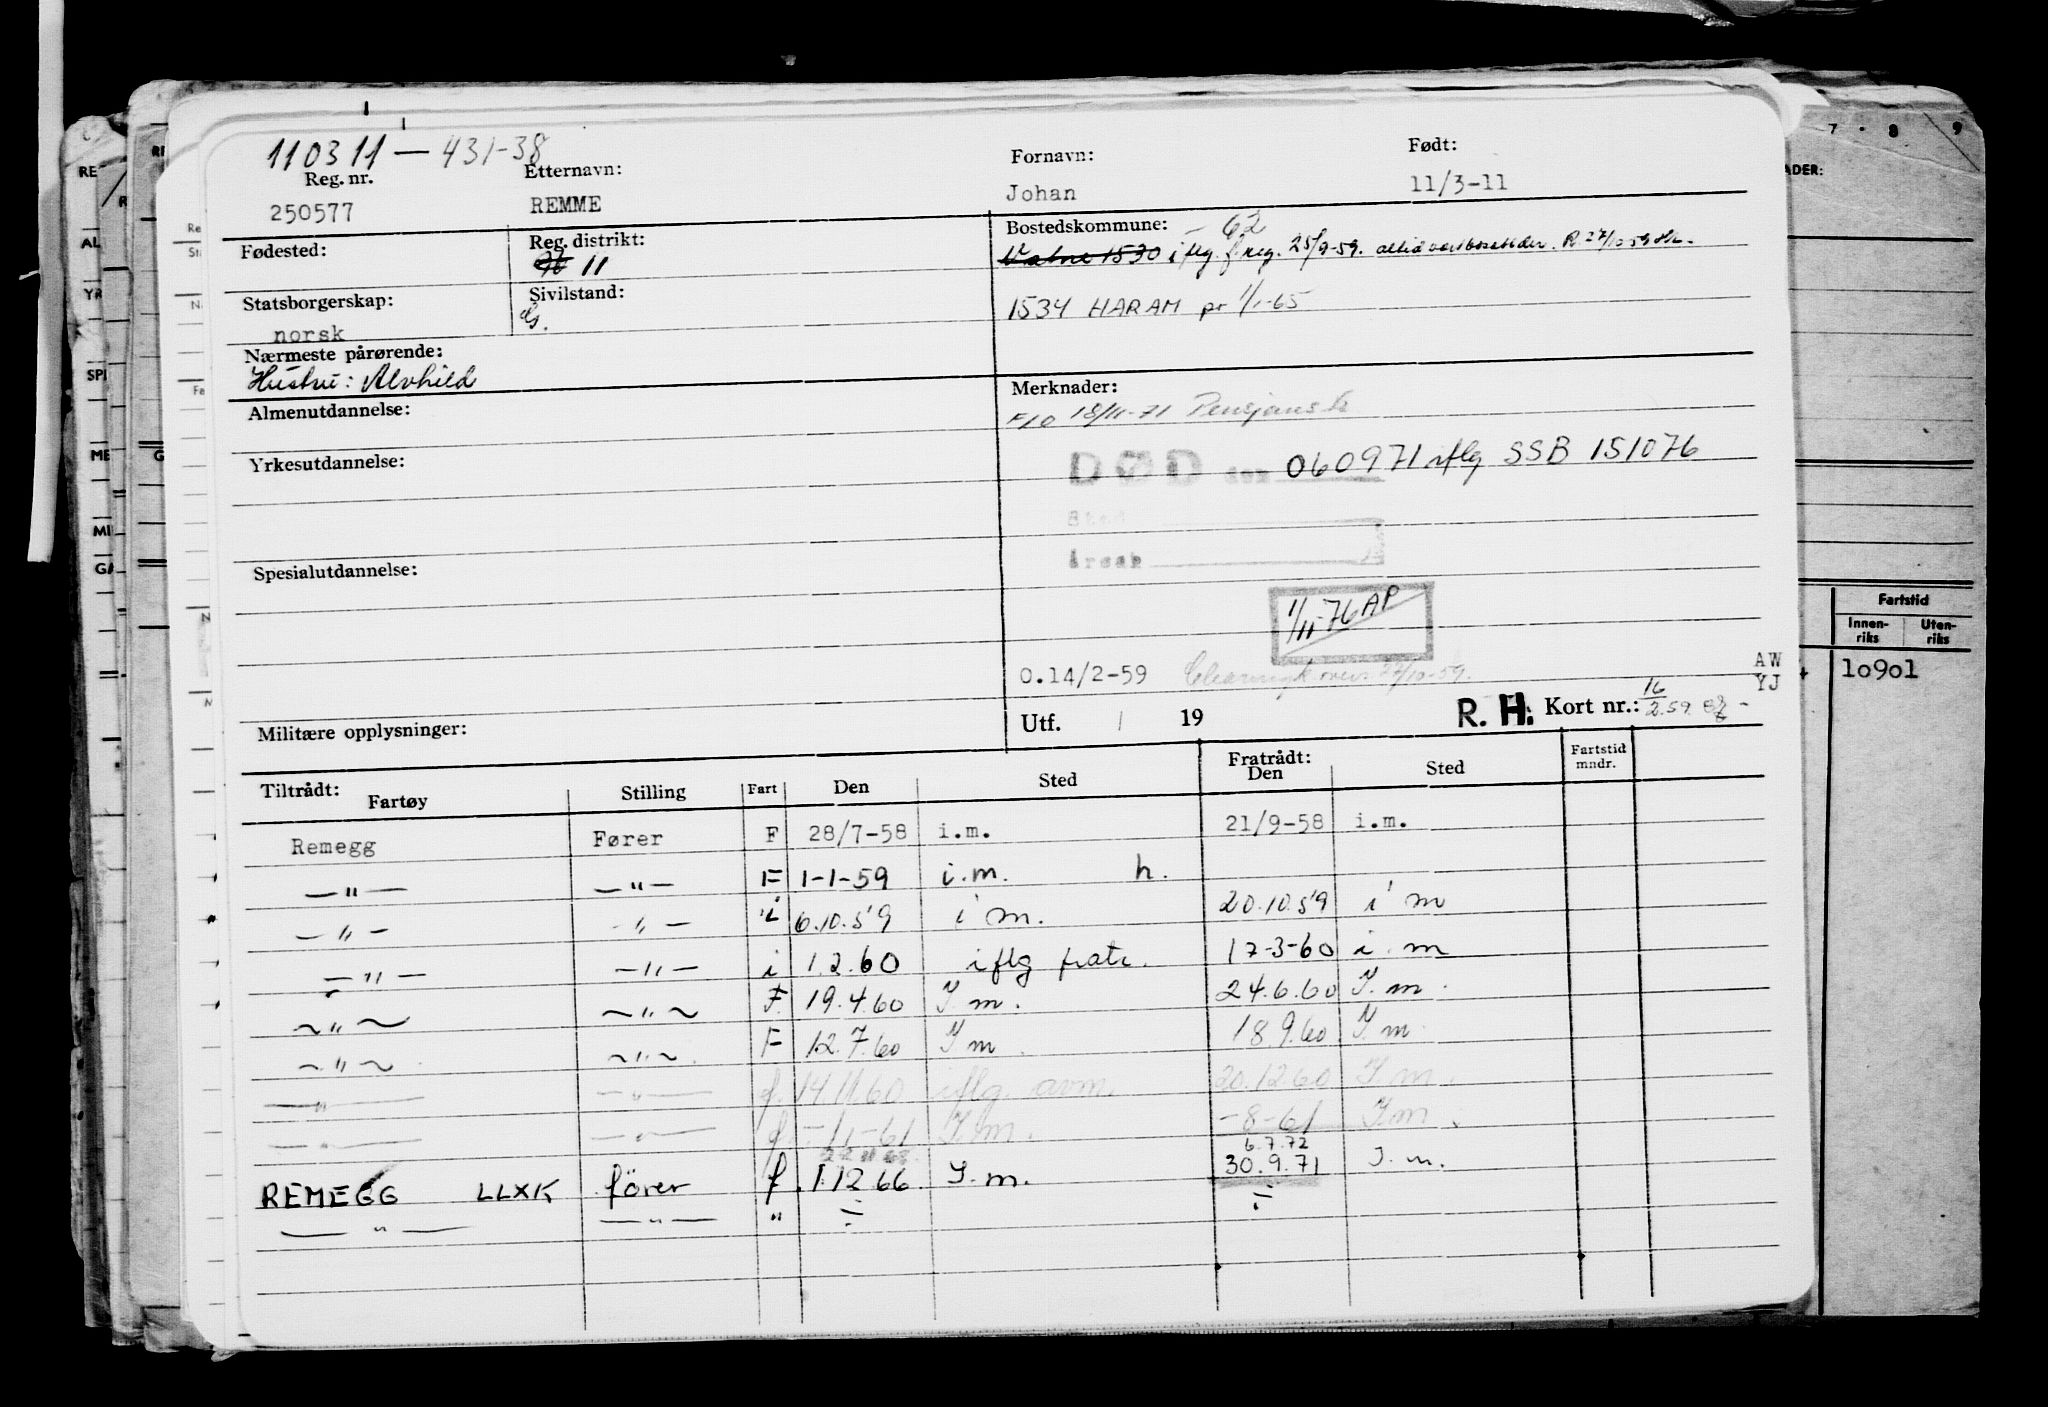 110311 — 431-38
Reg. nr. Etternavn: Fornavn: Født:
250577 REMME Johan 11/3-11
Fødested: Reg. distrikt: Bostedskommune: - 62
11 Vatne 1530 iflg. f.reg. 25/9-59. alltid vært bosatt der. R. 27/10-59
Statsborgerskap: Sivilstand: 1534 HARAM pr 1/1-65
norsk G.
Nærmeste pårørende:
Hustru: Alvhild
Almenutdannelse: Merknader:
F10 18/11-71 Pensjonstr
Yrkesutdannelse: DØD den 060971 iflg SSB 151076
Sted
Årsak
Spesialutdannelse:
1/11-76 AP
0.14/2-59 27/10-59.
AW
YJ
Militære opplysninger: Utf. / 19 R. H. Kort nr.: 16/2.59
Tiltrådt: Fratrådt:
Fartøy Stilling Fart Den Sted Den Sted Fartstid mndr.
Remegg Fører F 28/7-58 i.m. 21/9-58 i.m.
—"— —"— F 1-1-59 i.m. h.
—"— -"— i 6.10.59 i m. 20.10.59 i m
—"— —"— i 1.2.60 iflg fratr. 17-3-60 i.m
~"~ ~"~ F 19.4.60 I m. 24.6.60 I.m.
~"~ ~"~ F 12.7.60 I m. 18.9.60 I m
—"— —"— f. 14.11.60 iflg. avm. 20.12.60 I m.
—"— —"— f -11-61 I.m. -8-61 I.m.
22.11.68. 6.7.72
REMEGG LLXK förer f. 1.12.66. I.m. 30.9.71 I.m.
—"— —"— " ÷ ÷
7 8 9
ADER:
Fartstid
Innenriks Utenriks
10901